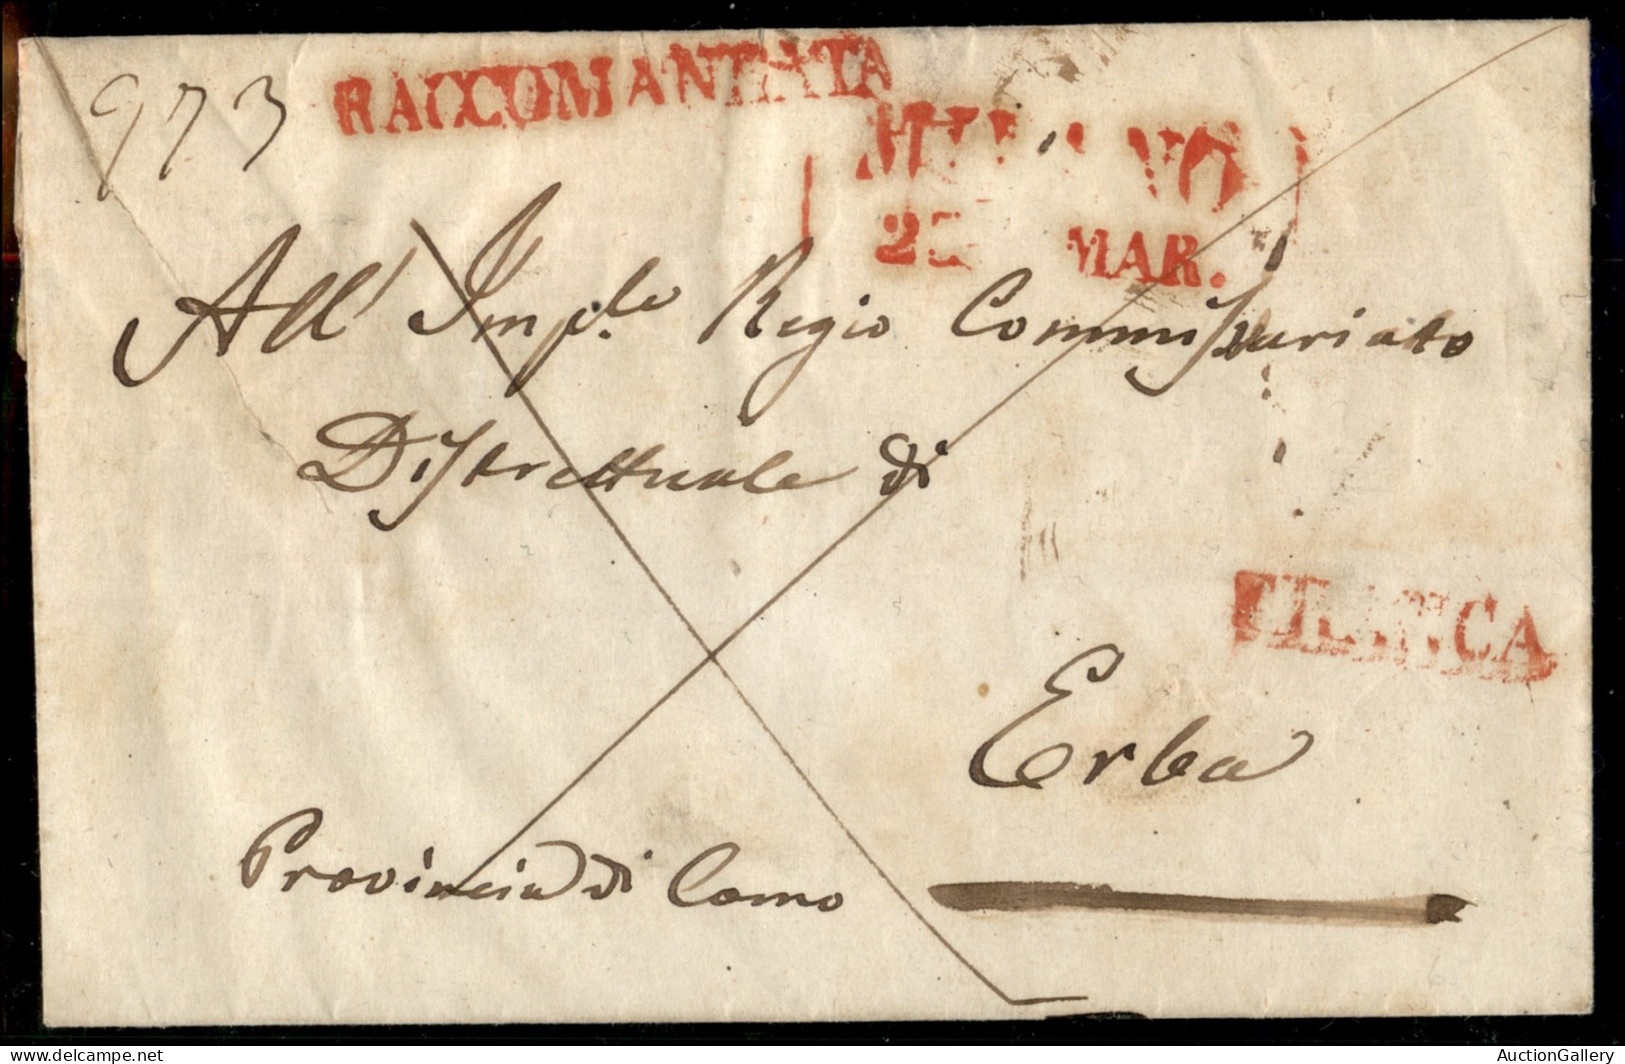 973 RACCOMANDATA
MILANO
MAR.
All' Imp.le Regio Commissariato
Distrettuale di
FRANCA
Erba
Provincia di Como
delcampe.net
AuctionGallery